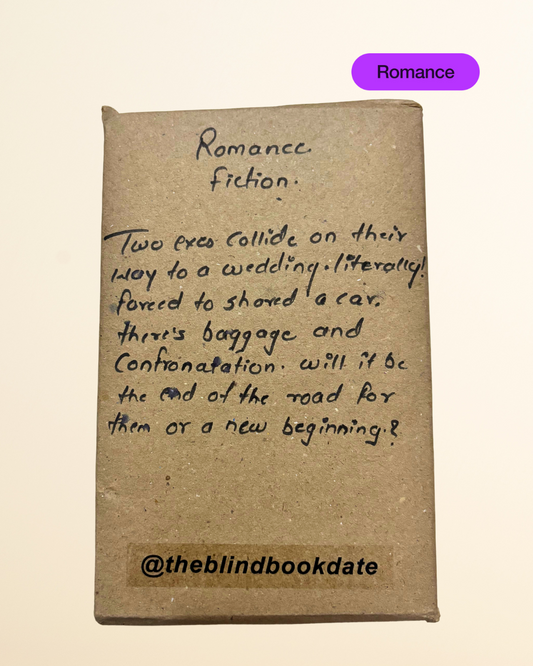 Romance
Romance
fiction.
Two exes collide on their
way to a wedding. literally!
forced to shared a car.
there's baggage and
Confronatation. will it be
the end of the road for
them or a new beginning.?
@theblindbookdate